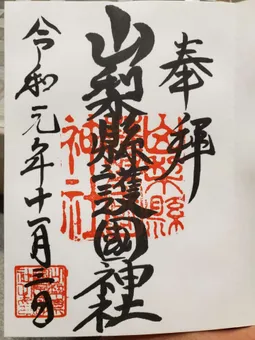 奉拝
山梨縣護國神社
山梨縣
神社
令和元年十一月三日